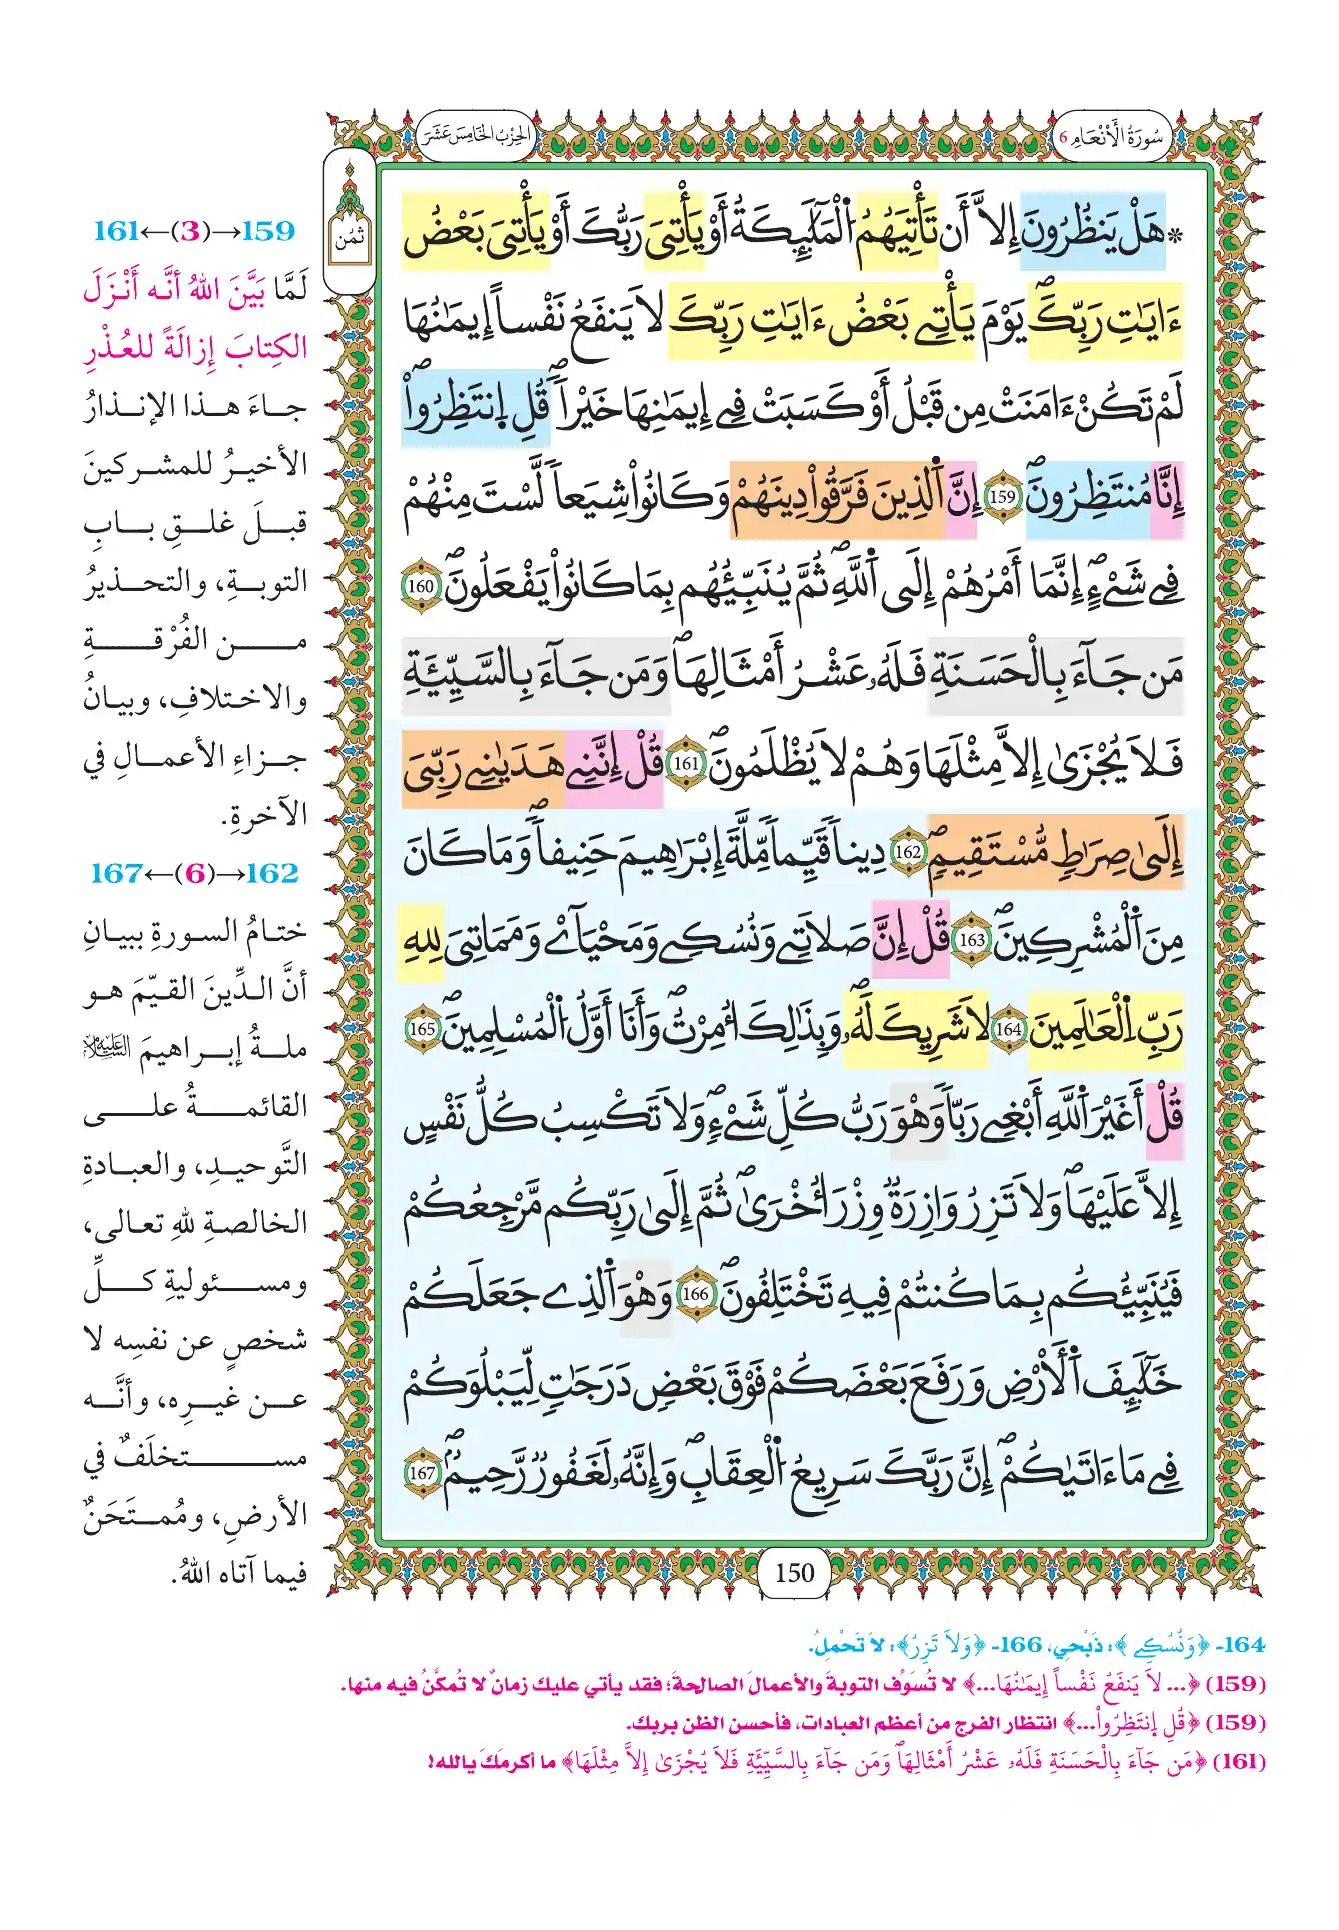 سُورَةُ الْأَنْعَامِ 6
الحِزْبُ الخَامِسَ عَشَرَ
ثُمُن
* هَلْ يَنظُرُونَ إِلَّا أَن تَأْتِيَهُمُ اُ۬لْمَلَٰٓئِكَةُ أَوْ يَأْتِىَ رَبُّكَ أَوْ يَأْتِىَ بَعْضُ
ءَايَٰتِ رَبِّكَۖ يَوْمَ يَأْتِے بَعْضُ ءَايَٰتِ رَبِّكَ لَا يَنفَعُ نَفْساً إِيمَٰنُهَا
لَمْ تَكُنْ ءَامَنَتْ مِن قَبْلُ أَوْ كَسَبَتْ فِے إِيمَٰنِهَا خَيْراًۖ قُلِ اِ۪نتَظِرُوٓاْۖ
إِنَّا مُنتَظِرُونَۖ 159 إِنَّ اَ۬لذِينَ فَرَّقُواْ دِينَهُمْ وَكَانُواْ شِيَعاً لَّسْتَ مِنْهُمْ
فِے شَےْءٍۖ اِنَّمَا أَمْرُهُمْ إِلَى اَ۬للَّهِۖ ثُمَّ يُنَبِّئُهُم بِمَا كَانُواْ يَفْعَلُونَۖ 160
مَن جَآءَ بِالْحَسَنَةِ فَلَهُۥ عَشْرُ أَمْثَالِهَاۖ وَمَن جَآءَ بِالسَّيِّئَةِ
فَلَا يُجْزَىٰ إِلَّا مِثْلَهَا وَهُمْ لَا يُظْلَمُونَۖ 161 قُلْ إِنَّنِے هَدَيٰنِے رَبِّىَ
إِلَىٰ صِرَٰطٍ مُّسْتَقِيمٍۖ 162 دِيناً قَيِّماً مِّلَّةَ إِبْرَٰهِيمَ حَنِيفاًۖ وَمَا كَانَ
مِنَ اَ۬لْمُشْرِكِينَۖ 163 قُلْ إِنَّ صَلَاتِے وَنُسُكِے وَمَحْيَآےْ وَمَمَاتِىَ لِلهِ
رَبِّ اِ۬لْعَٰلَمِينَ 164 لَا شَرِيكَ لَهُۥۖ وَبِذَٰلِكَ أُمِرْتُۖ وَأَنَا أَوَّلُ اُ۬لْمُسْلِمِينَۖ 165
قُلْ أَغَيْرَ اَ۬للَّهِ أَبْغِے رَبّاً وَهْوَ رَبُّ كُلِّ شَےْءٍۖ وَلَا تَكْسِبُ كُلُّ نَفْسٍ
إِلَّا عَلَيْهَاۖ وَلَا تَزِرُ وَازِرَةٌ وِزْرَ أُخْرَىٰۖ ثُمَّ إِلَىٰ رَبِّكُم مَّرْجِعُكُمْ
فَيُنَبِّئُكُم بِمَا كُنتُمْ فِيهِ تَخْتَلِفُونَۖ 166 وَهْوَ اَ۬لذِے جَعَلَكُمْ
خَلَٰٓئِفَ اَ۬لْأَرْضِ وَرَفَعَ بَعْضَكُمْ فَوْقَ بَعْضٍ دَرَجَٰتٍ لِّيَبْلُوَكُمْ
فِے مَا ءَاتَيٰكُمْۖ إِنَّ رَبَّكَ سَرِيعُ اُ۬لْعِقَابِۖ وَإِنَّهُۥ لَغَفُورٌ رَّحِيمٌۖ 167
159→(3)←161
لَمَّا بَيَّنَ اللهُ أنَّه أَنْزَلَ
الكِتابَ إِزالَةً للعُذْرِ
جاءَ هذا الإنذارُ
الأخيرُ للمشركينَ
قبلَ غلقِ بابِ
التوبةِ، والتحذيرُ
من الفُرْقةِ
والاختلافِ، وبيانُ
جزاءِ الأعمالِ في
الآخرةِ.
162→(6)←167
ختامُ السورةِ ببيانِ
أنَّ الدِّينَ القيّمَ هو
ملةُ إبراهيمَ عليه السلام
القائمةُ على
التَّوحيدِ، والعبادةِ
الخالصةِ للهِ تعالى،
ومسئوليةِ كلِّ
شخصٍ عن نفسِه لا
عن غيرِه، وأنَّه
مستخلَفٌ في
الأرضِ، ومُمتَحَنٌ
فيما آتاه اللهُ.
150
164- ﴿وَنُسُكِے﴾: ذَبْحِي، 166- ﴿وَلَا تَزِرُ﴾: لا تَحْمِلُ.
(159) ﴿... لَا يَنفَعُ نَفْساً إِيمَٰنُهَا...﴾ لا تُسَوِّف التوبةَ والأعمالَ الصالحةَ؛ فقد يأتي عليك زمانٌ لا تُمكَّنُ فيه منها.
(159) ﴿قُلِ اِ۪نتَظِرُوٓاْ...﴾ انتظار الفرج من أعظم العبادات، فأحسن الظن بربك.
(161) ﴿مَن جَآءَ بِالْحَسَنَةِ فَلَهُۥ عَشْرُ أَمْثَالِهَاۖ وَمَن جَآءَ بِالسَّيِّئَةِ فَلَا يُجْزَىٰ إِلَّا مِثْلَهَا﴾ ما أكرمَكَ يالله!